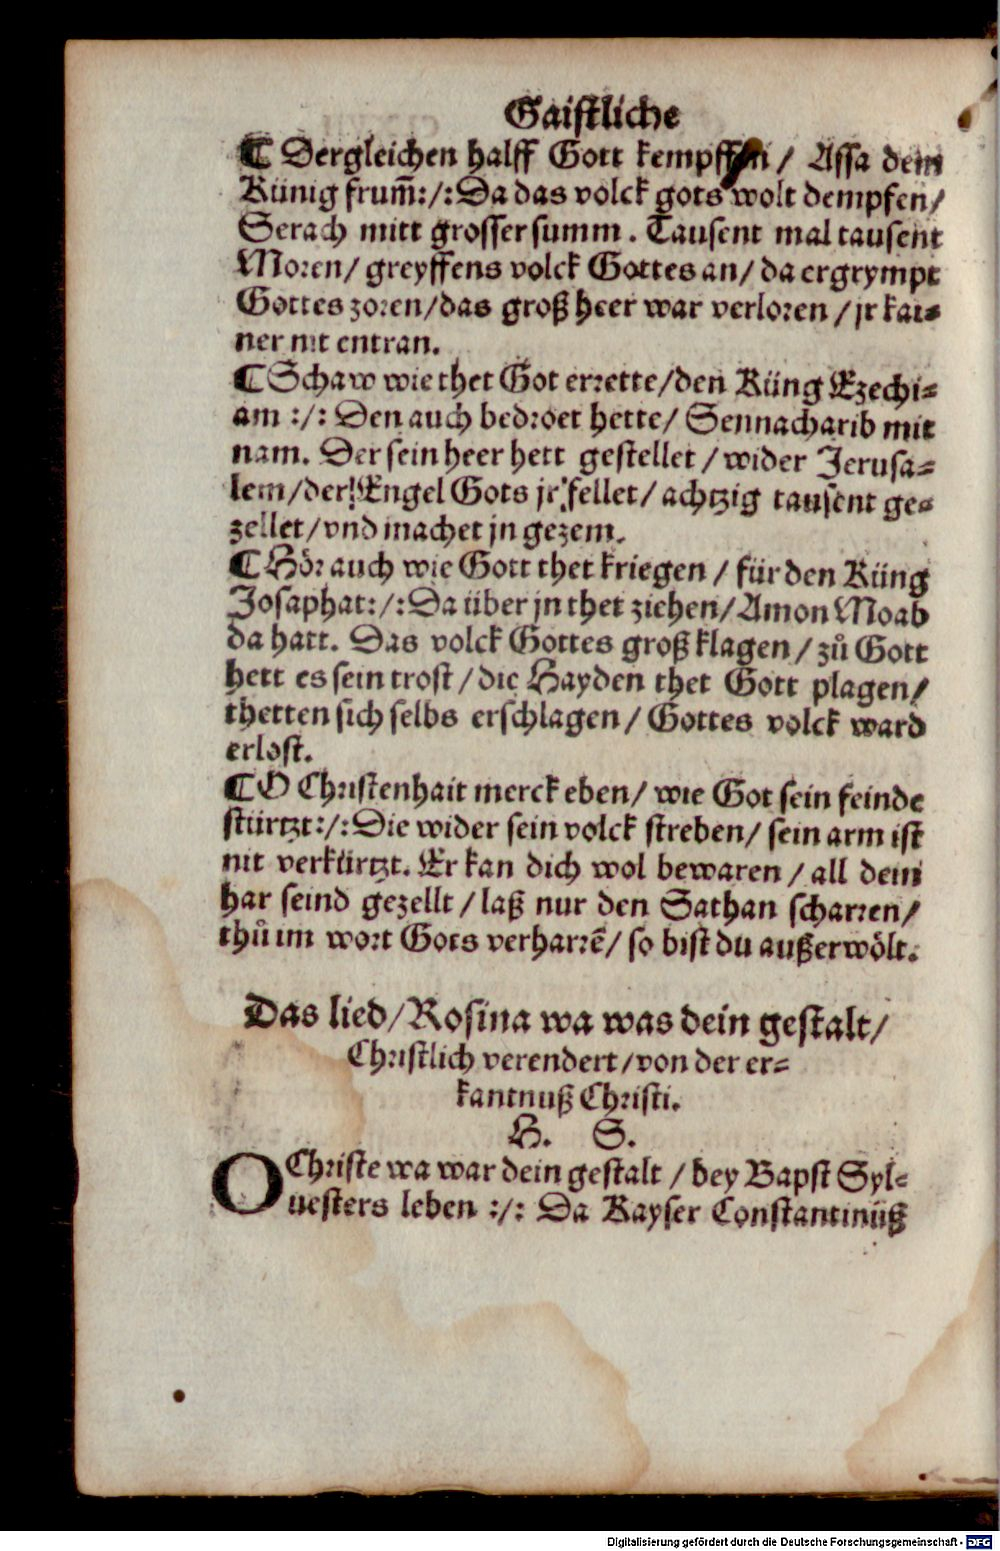 Gaistliche
¶ Dergleichen halff Gott kempffen / Assa dem
Künig frum̄:/: Da das volck gots wolt dempfen/
Serach mitt grosser summ. Tausent mal tausent
Moren/ greyffens volck Gottes an/ da ergrympt
Gottes zoren/das groß heer war verloren / jr kai⸗
ner nit entran.
¶ Schaw wie thet Got errette/den Küng Ezechi⸗
am :/: Den auch bedroet hette/ Sennacharib mit
nam. Der sein heer hett gestellet / wider Jerusa⸗
lem/der Engel Gots jr fellet/ achtzig tausent ge⸗
zellet/vnd machet jn gezem.
¶ Hör auch wie Gott thet kriegen / für den Küng
Josaphat:/: Da über jn thet ziehen/ Amon Moab
da hatt. Das volck Gottes groß klagen / zů Gott
hett es sein trost / die Hayden thet Gott plagen/
thetten sich selbs erschlagen / Gottes volck ward
erlost.
¶ O Christenhait merck eben/ wie Got sein feinde
stürtzt:/: Die wider sein volck streben/ sein arm ist
nit verkürtzt. Er kan dich wol bewaren / all dein
har seind gezellt / laß nur den Sathan scharren/
thů im wort Gots verharrē/ so bist du außerwölt.
Das lied/Rosina wa was dein gestalt/
Christlich verendert/von der er⸗
kantnuß Christi.
H. S.
O Christe wa war dein gestalt / bey Bapst Syl⸗
uesters leben :/: Da Kayser Constantinüß
Digitalisierung gefördert durch die Deutsche Forschungsgemeinschaft - DFG